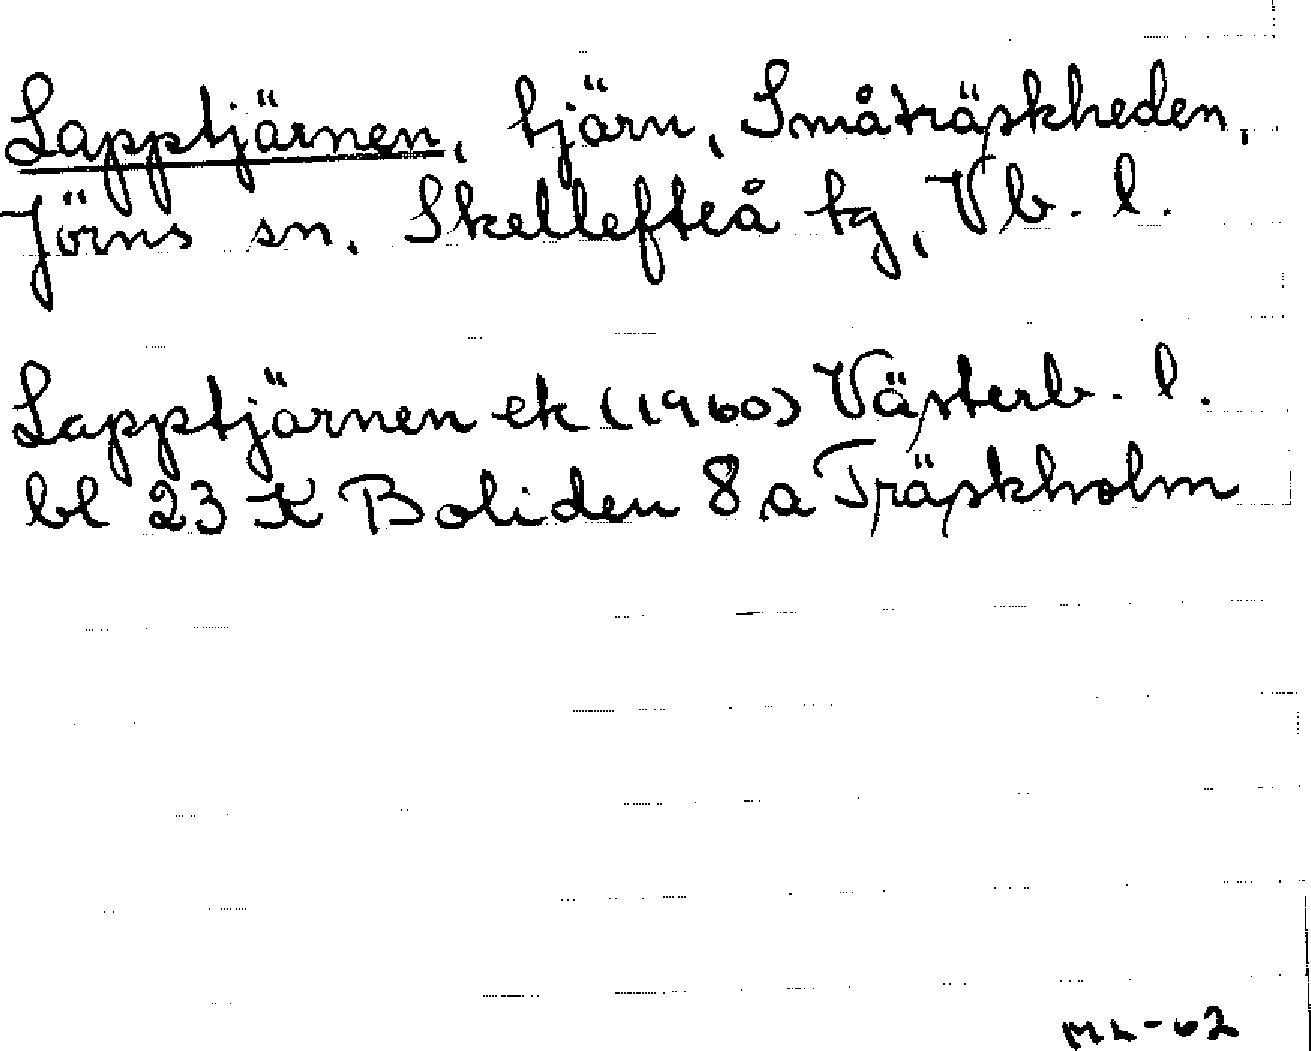 Lapptjärnen, tjärn, Småträskheden,
Jörns sn, Skellefteå tg, Vb. l.
Lapptjärnen ek (1960) Västerb. l.
bl 23 K Boliden 8 a Träskholm
ML-62